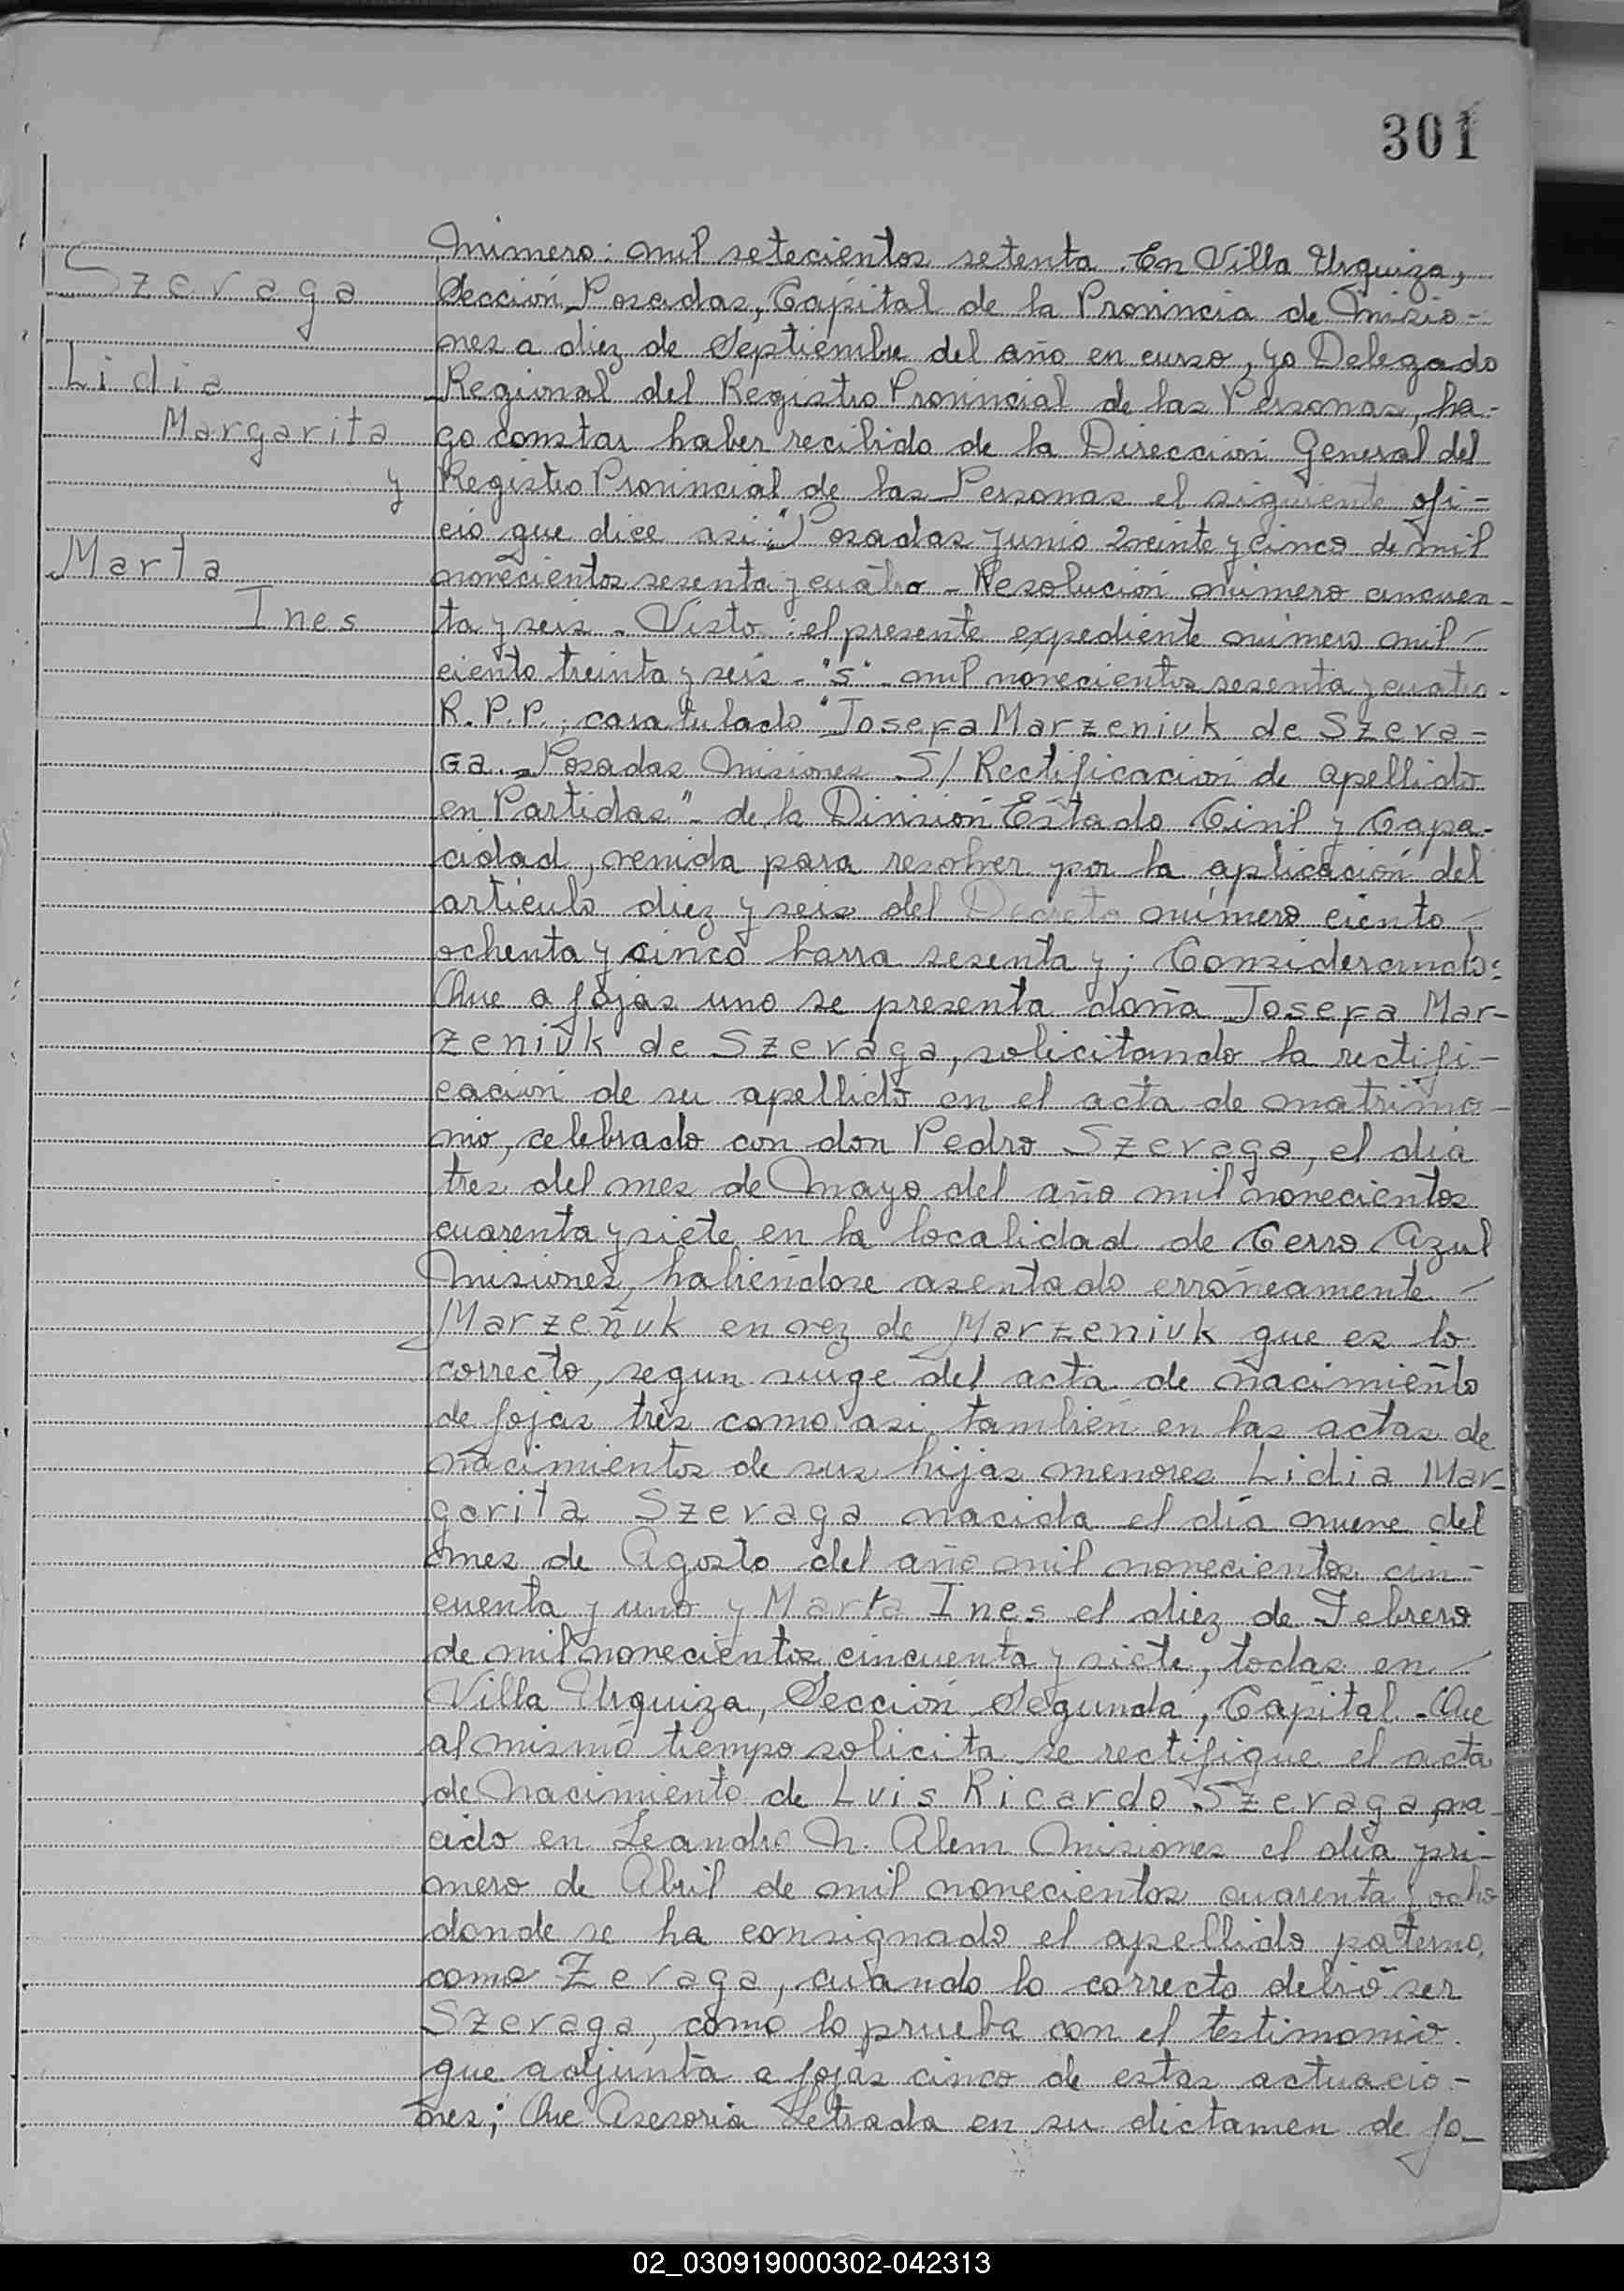 301
Szevaga
Lidia
Margarita
y
Marta
Ines
Número: mil setecientos setenta. En Villa Urquiza,
Sección Posadas, Capital de la Provincia de Misio-
nes a diez de Septiembre del año en curso, yo Delegado
Regional del Registro Provincial de las Personas, ha-
go constar haber recibido de la Dirección General del
Registro Provincial de las Personas el siguiente ofi-
cio que dice asi: "Posadas Junio 2veinte y cinco de mil
novecientos sesenta y cuatro - Resolución número cincuen-
ta y seis - Visto: el presente expediente número mil
ciento treinta y seis - "S" - mil novecientos sesenta y cuatro -
R.P.P., caratulado "Josefa Marzeniuk de Szeva-
ga. - Posadas Misiones S/ Rectificación de apellido
en Partidas" - de la División Estado Civil y Capa-
cidad, venida para resolver por la aplicación del
artículo diez y seis del Decreto número ciento
ochenta y cinco barra sesenta y; Considerando:
Que a fojas uno se presenta doña Josefa Mar-
zeniuk de Szevaga, solicitando la rectifi-
cación de su apellido en el acta de matrimo-
nio, celebrado con don Pedro Szevaga, el día
tres del mes de Mayo del año mil novecientos
cuarenta y siete en la localidad de Cerro Azul
Misiones, habiéndose asentado erróneamente
Marzeñuk en vez de Marzeniuk que es lo
correcto, segun surge del acta de nacimiento
de fojas tres como asi tambien en las actas de
nacimientos de sus hijas menores Lidia Mar-
garita Szevaga nacida el día nueve del
mes de Agosto del año mil novecientos cin-
cuenta y uno y Marta Ines el diez de Febrero
de mil novecientos cincuenta y siete, todas en
Villa Urquiza, Sección Segunda, Capital. Que
al mismo tiempo solicita se rectifique el acta
de Nacimiento de Luis Ricardo Szevaga, na-
cido en Leandro N. Alem Misiones el día pri-
mero de Abril de mil novecientos cuarenta y ocho
donde se ha consignado el apellido paterno
como Zevaga, cuando lo correcto debió ser
Szevaga, como lo prueba con el testimonio
que adjunta a fojas cinco de estas actuacio-
nes; Que Asesoria Letrada en su dictamen de fo-
02_030919000302-042313